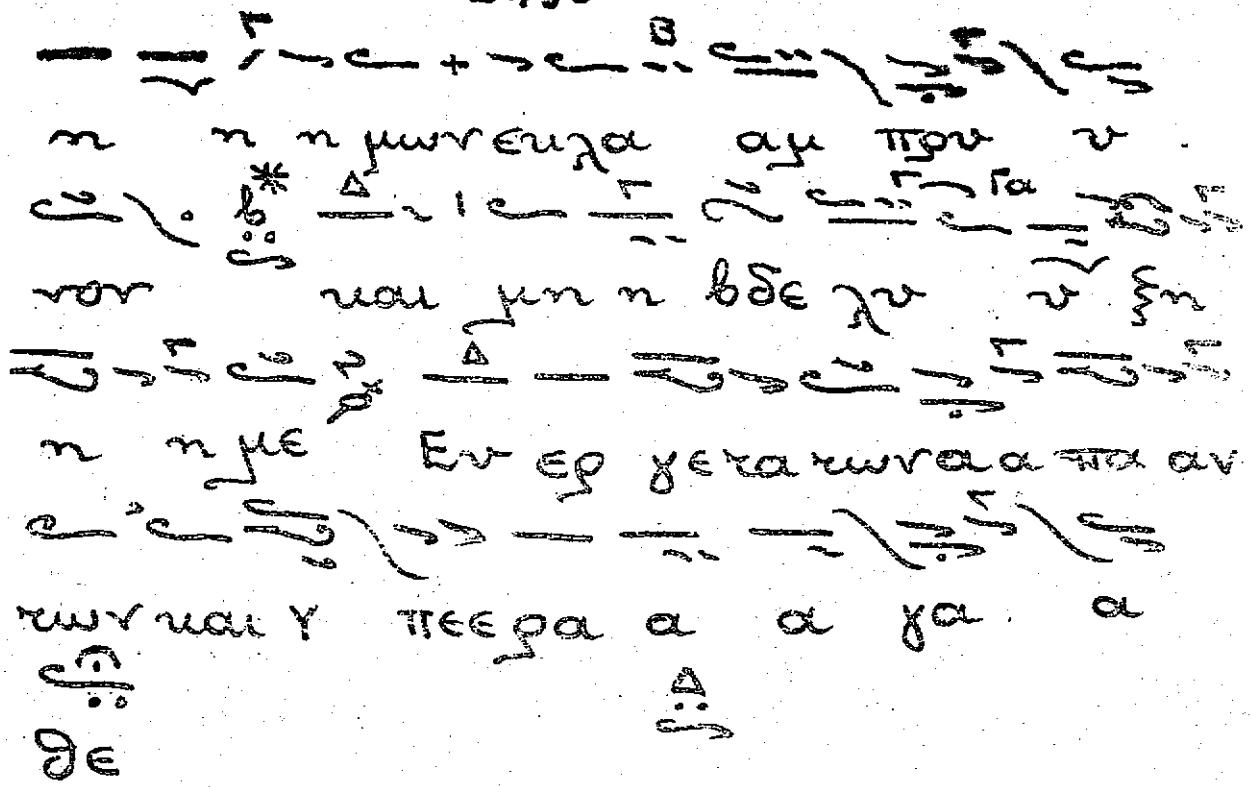 η η η μων εκ λα αμ πρου υ .
νον και μη η βδε λυ υ ξη
η η με Ευ ερ γε τα των α α πα αν
των και Υ πε ε ρα α α γα . α
θε